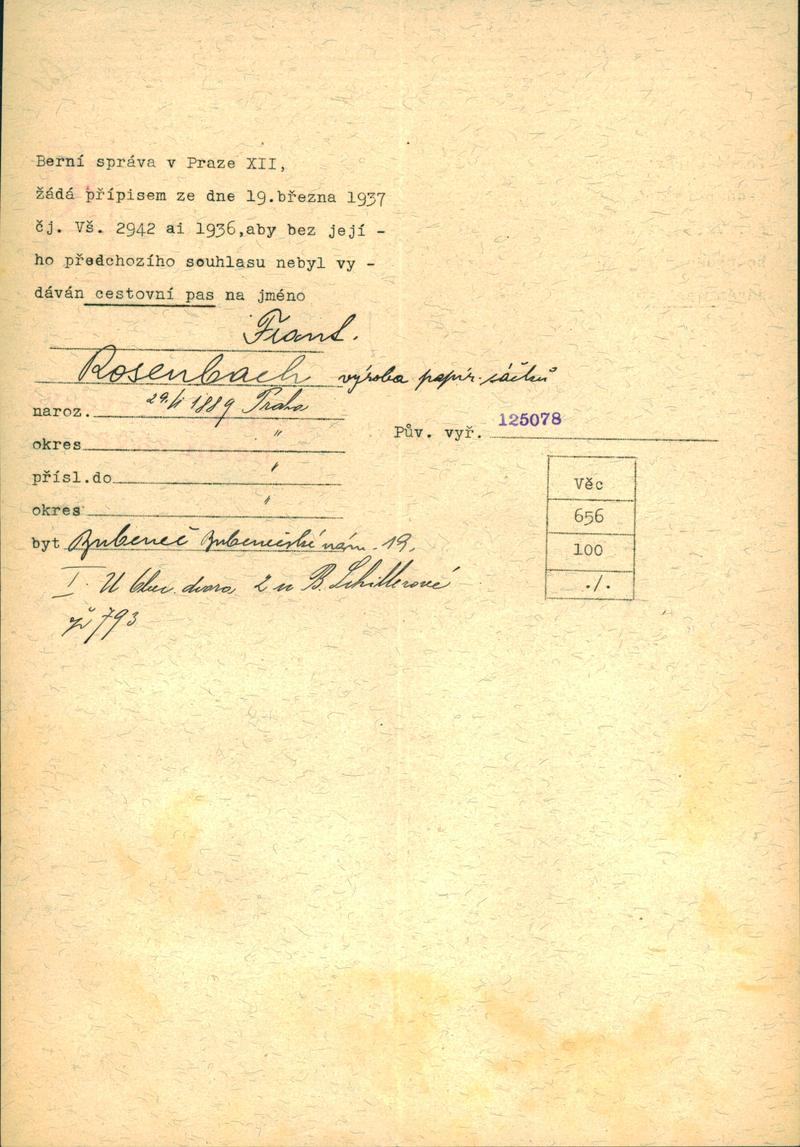 Berní správa v Praze XII,
žádá přípisem ze dne 19.března 1937
čj. Vš. 2942 ai 1936,aby bez její -
ho předchozího souhlasu nebyl vy -
dáván cestovní pas na jméno
Frant.
Rosenbach výroba papír. sáčků
naroz. 1889 Praha
Pův. vyř. 125078
okres "
přísl.do "
okres "
byt Bubeneč Bubenečské nám. 19.
I. U dvora 2 u B. Schillerové
čp 793
Věc
656
100
./.